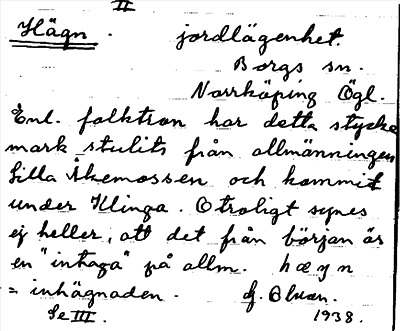 II
Hägn. jordlägenhet.
Borgs sn.
Norrköping Ögl.
Enl. folktron har detta stycke
mark stulits från allmänningen
Lilla Åkemossen och kommit
under Klinga. Otroligt synes
ej heller, att det från början är
en "intaga" på allm. hæɟn
= inhägnaden. G. Olson.
Se III. 1938.